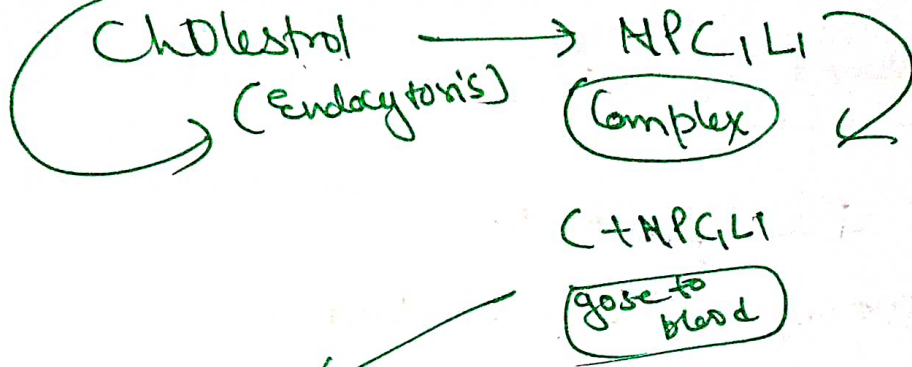 Cholestrol → NPC1L1
(Endocytosis)
Complex
C + NPC1L1
gose to
blood